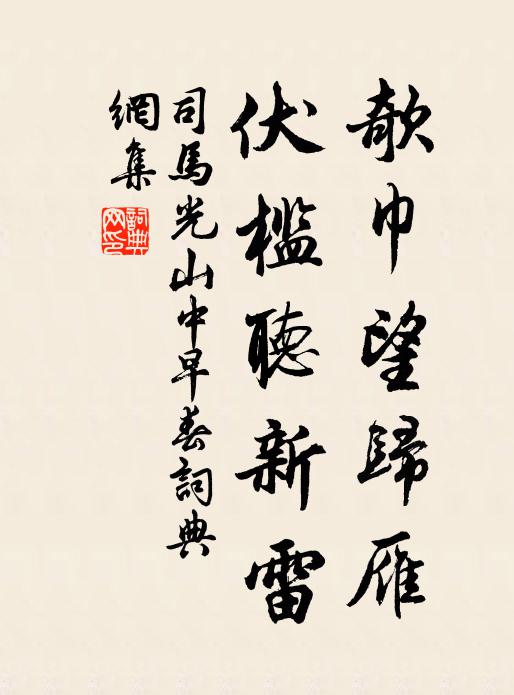 欹巾望歸雁
伏檻聽新雷
司馬光山中早春詞典
網集
詞典
网印